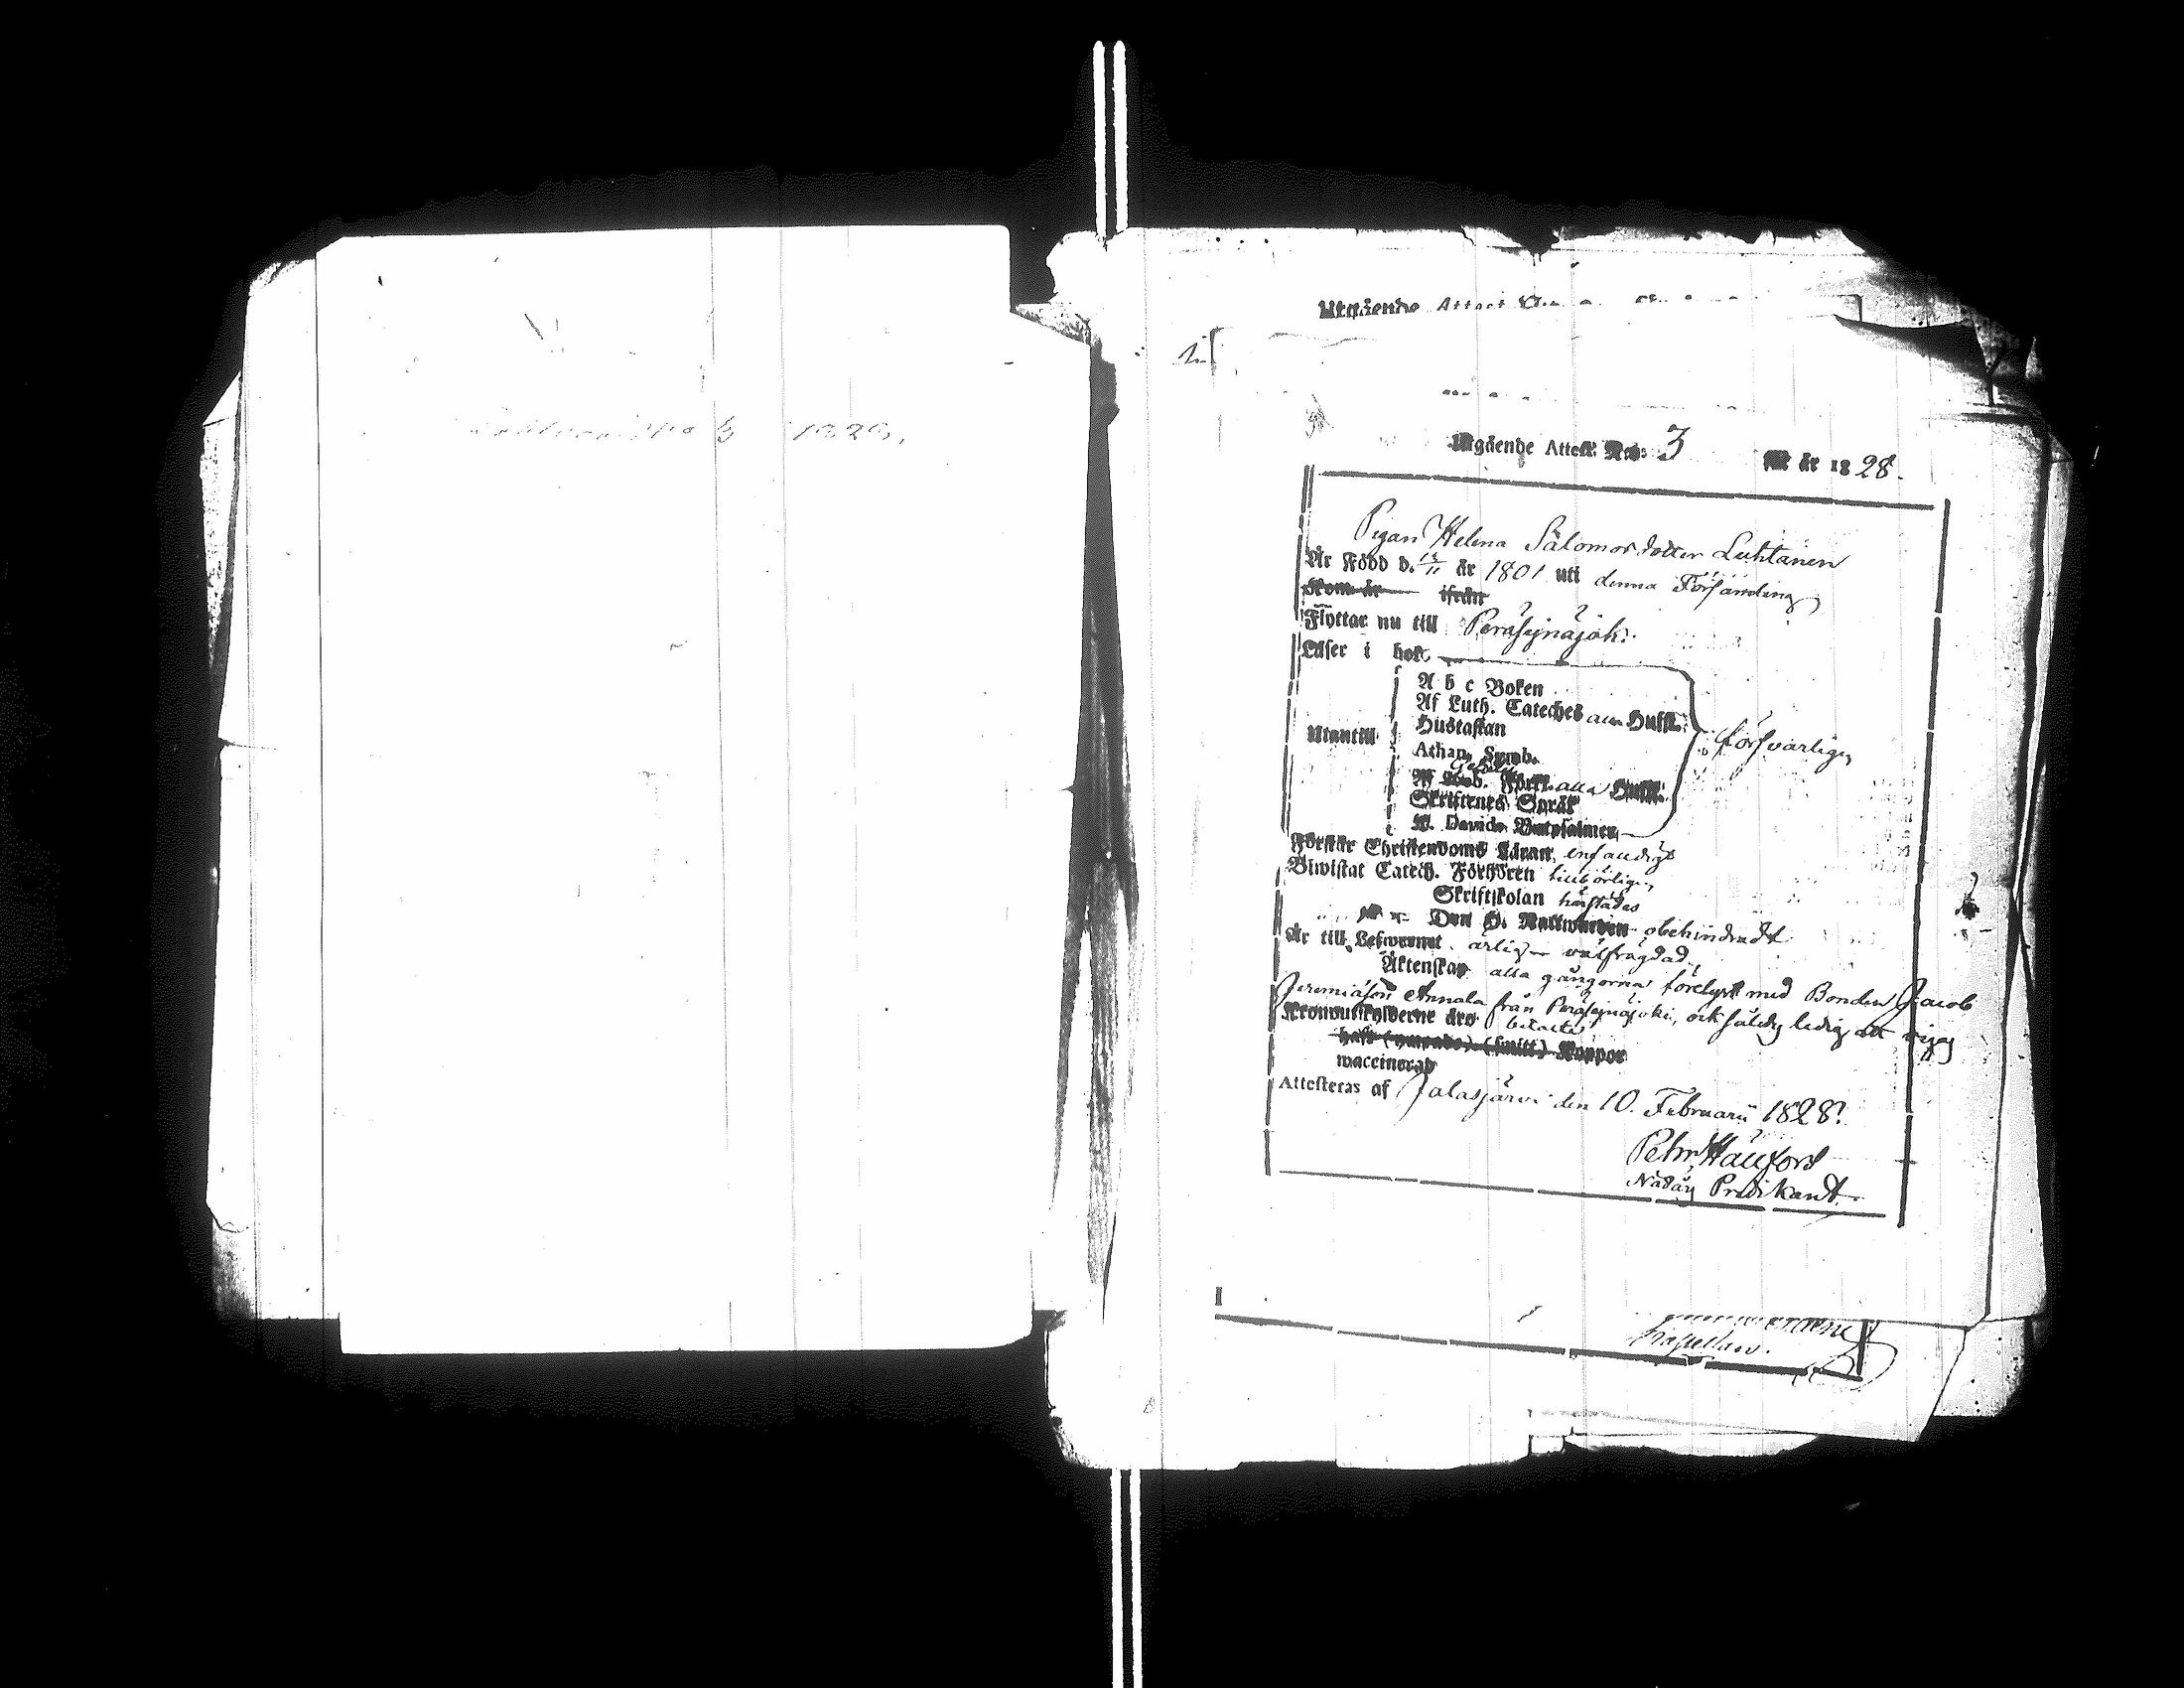 1828.
Utgående Attest
Utgående Attest N:o 3 för år 1828.
Pigan Helena Salomonsdotter Luhtanen
Är Född d. 12/11 år 1801 uti denna Församling
Kom år ifrån
Flyttar nu till Peräseinäjoki
Läser i bok
Utantill
A b c Boken
Af Luth. Cateches alla Hufst.
Hustaflan
Athan. Symb.
Af Förkl. alla Hufst.
Skriftenes Språk
K. Davids Botpsalmer
försvarligen
Förstår Christendoms Läran enfaldigt
Biwistat Catech. Förhören tillbörligen
Skriftskolan härstädes
Den H. Nattwarden obehindradt
Är till Lefwernet ärlig välfrägdad
Äktenskap alla gångorna förelyst med Bonden Jacob
Jeremiäson Annala från Peräseinäjoki, och således ledig att
Kronoutskylderne äro betalte
haft (smitt) Koppor
waccinerad
Attesteras af Jalasjärvi den 10. Februarii 1828.
Petr.
Nådår Predikant.
Kapellan.